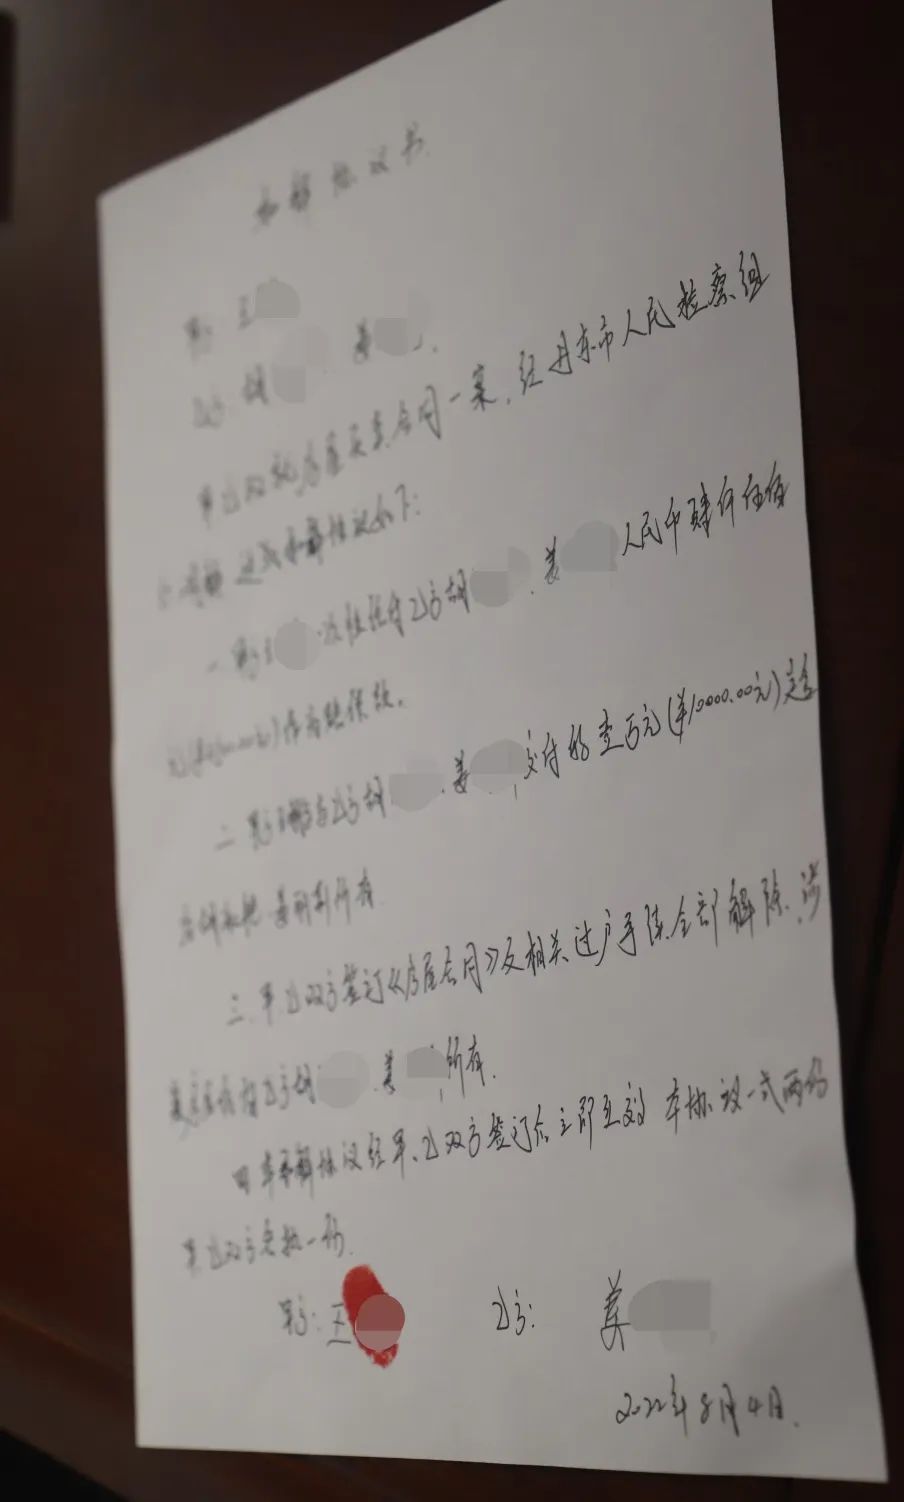 和解协议书
甲方: 王
乙方: 胡 . 姜 .
甲乙双就房屋买卖合同一案, 经丹东市人民检察组
达成和解协议如下:
一 甲方王 次性给付乙方胡 . 姜 人民币肆仟伍佰
作为
二 甲方 乙方胡 . 姜 交付的壹万元(¥10000.00元)定金
所有.
三. 甲乙双方签订《房屋合同》及相关过户手续全部解除. 涉
乙方胡 . 姜 所有.
四 本和解协议经甲、乙双方签订后立即生效 本协议一式两份
甲乙双方各执一份.
甲方: 王 乙方: 姜
2022年8月4日.